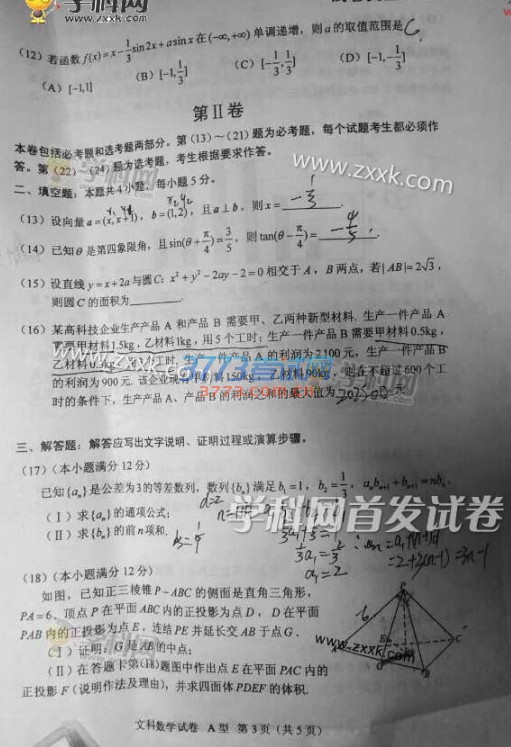 www.zxxk.com
(12) 若函数 f(x)=x-1/3 sin2x+asinx 在(-∞,+∞) 单调递增，则 a 的取值范围是 C
(A) [-1,1] (B) [-1,1/3] (C) [-1/3,1/3] (D) [-1,-1/3]
第Ⅱ卷
本卷包括必考题和选考题两部分。第 (13)～(21) 题为必考题，每个试题考生都必须作
答。第 (22)～(24) 题为选考题，考生根据要求作答。
学科网
www.zxxk.com
二、填空题：本题共4小题，每小题5分。
(13) 设向量 a=(x,x+1)，b=(1,2)，且 a⊥b，则 x=
(14) 已知 θ 是第四象限角，且 sin(θ+π/4)=3/5，则 tan(θ-π/4)=
(15) 设直线 y=x+2a 与圆 C: x²+y²-2ay-2=0 相交于 A，B 两点，若|AB|=2√3，
则圆 C 的面积为
(16) 某高科技企业生产产品 A 和产品 B 需要甲、乙两种新型材料. 生产一件产品 A
需要甲材料1.5kg，乙材料1kg，用5个工时；生产一件产品 B 需要甲材料0.5kg，
乙材料0.3kg，用3个工时，生产一件产品 A 的利润为2100元，生产一件产品 B
的利润为900元. 该企业现有甲材料150kg，乙材料90kg，则在不超过600个工
时的条件下，生产产品 A、产品 B 的利润之和的最大值为 元.
www.zxxk.com
3773考试网
3773.com.cn
三、解答题：解答应写出文字说明、证明过程或演算步骤。
(17) (本小题满分12分)
已知{aₙ}是公差为3的等差数列，数列{bₙ}满足 b₁=1，b₂=1/3，aₙbₙ₊₁+bₙ₊₁=nbₙ.
(Ⅰ) 求{aₙ}的通项公式；
(Ⅱ) 求{bₙ}的前 n 项和.
学科网首发试卷
a₁=2
=2+3(n-1)=3n-1
(18) (本小题满分12分)
如图，已知正三棱锥 P-ABC 的侧面是直角三角形，
PA=6，顶点 P 在平面 ABC 内的正投影为点 D，D 在平面
PAB 内的正投影为点 E，连结 PE 并延长交 AB 于点 G.
(Ⅰ) 证明：G 是 AB 的中点；
(Ⅱ) 在答题卡第(18)题图中作出点 E 在平面 PAC 内的
正投影 F (说明作法及理由)，并求四面体 PDEF 的体积.
www.zxxk.com
文科数学试卷 A型 第3页（共5页）